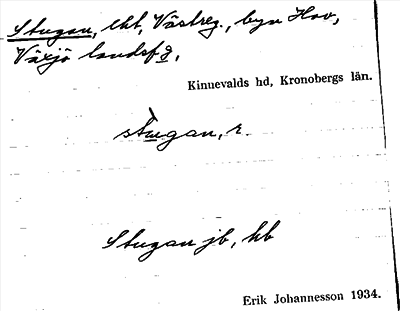 Stugan, lht, Västreg., byn Hov,
Växjö landsfg,
Kinnevalds hd, Kronobergs län.
stugan, r.
Stugan jb, hb
Erik Johannesson 1934.